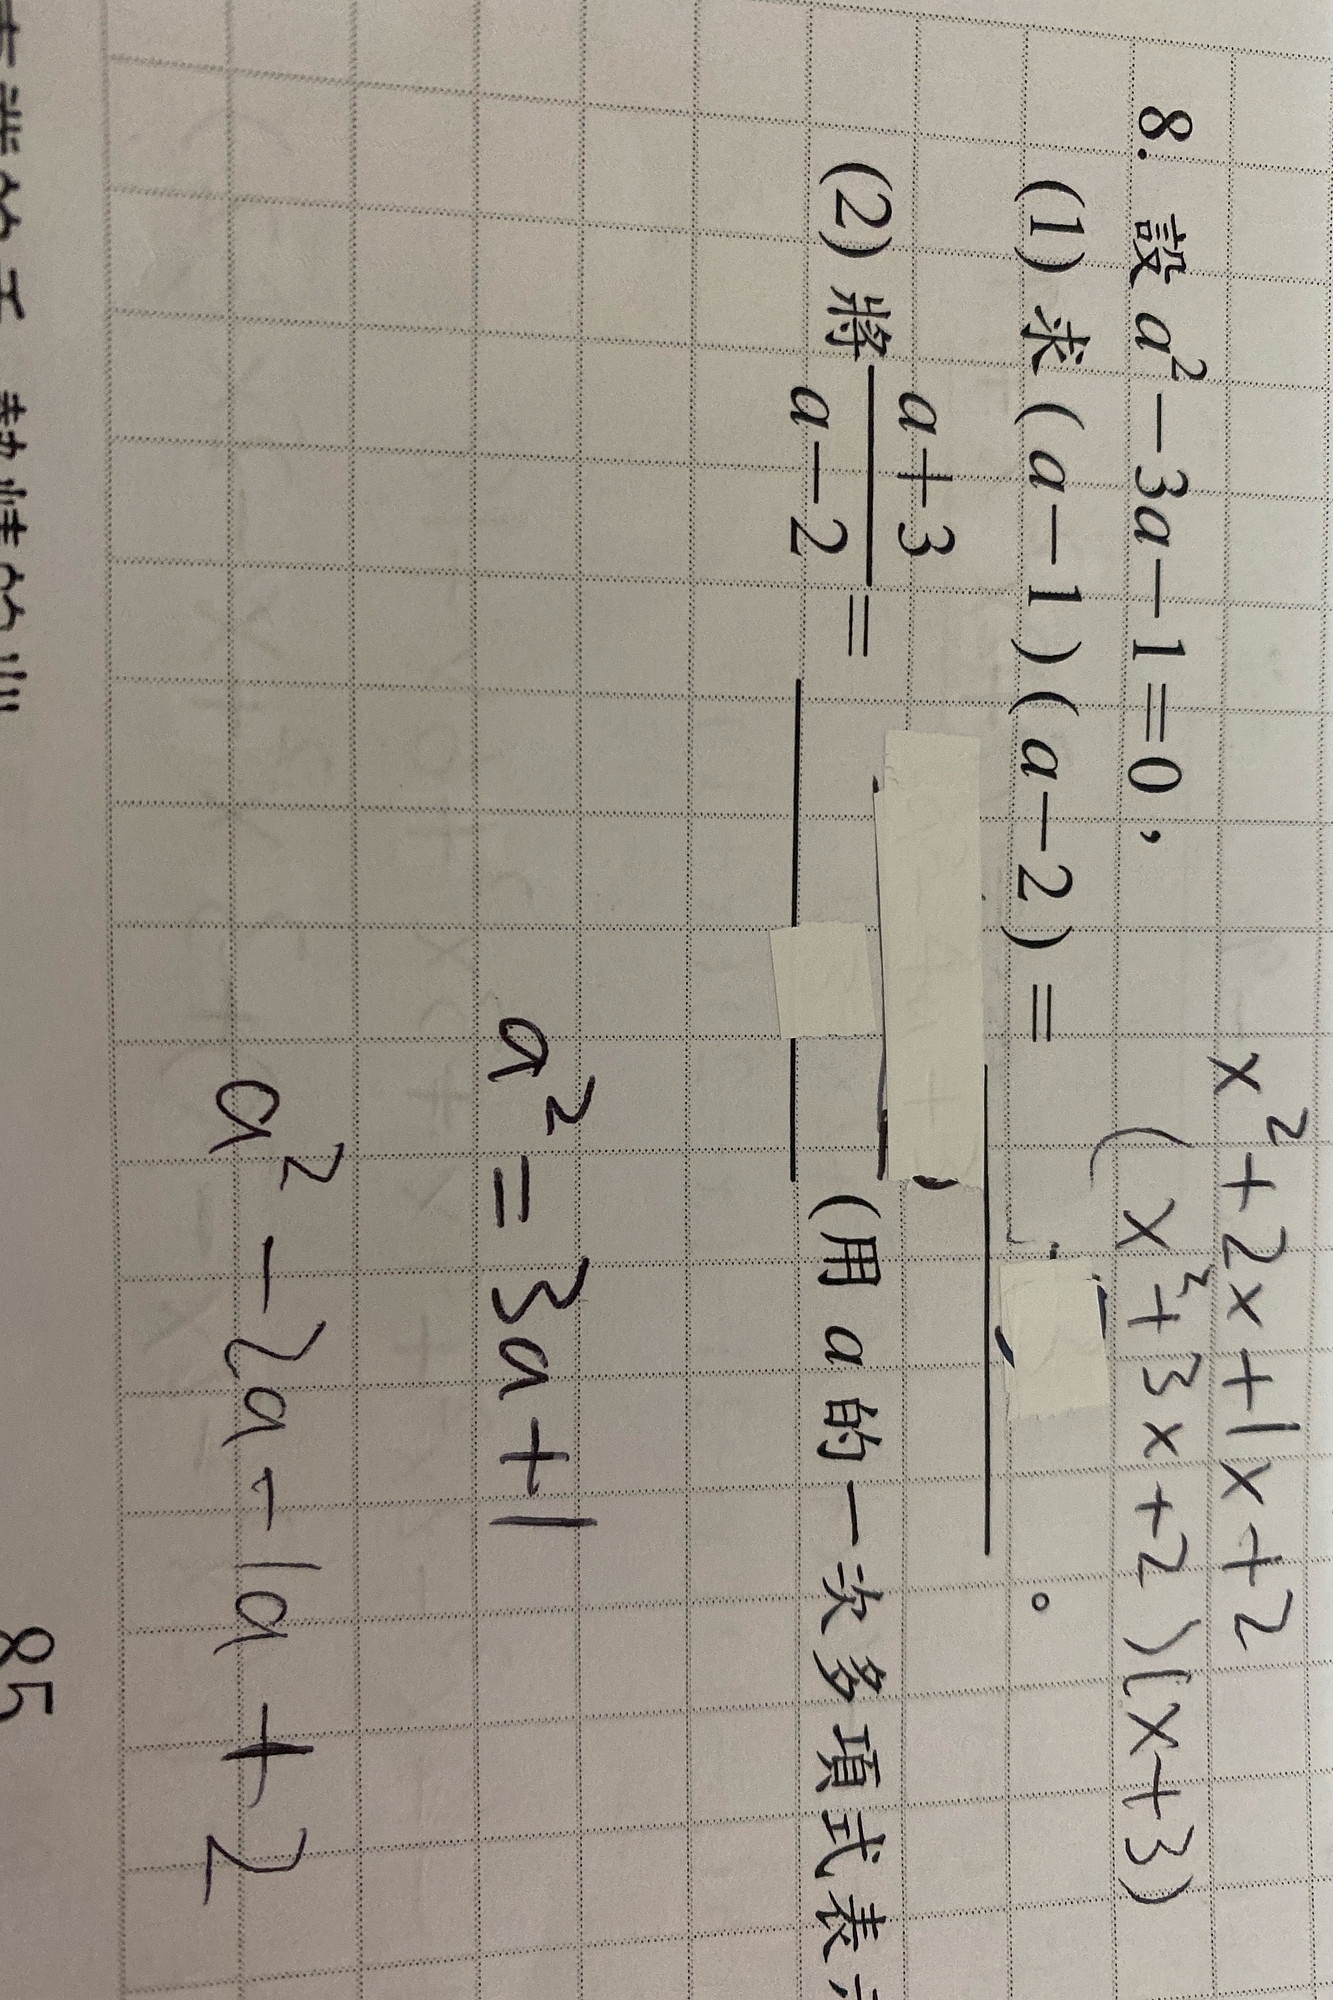 x²+2x+1x+2
8. 設 a²－3a－1＝0，
(x²+3x+2)(x+3)
(1) 求 (a－1)(a－2)＝ 。
(2) 將 \frac{a+3}{a-2}＝ (用 a 的一次多項式表
a²=3a+1
a²-2a-1a+2
85